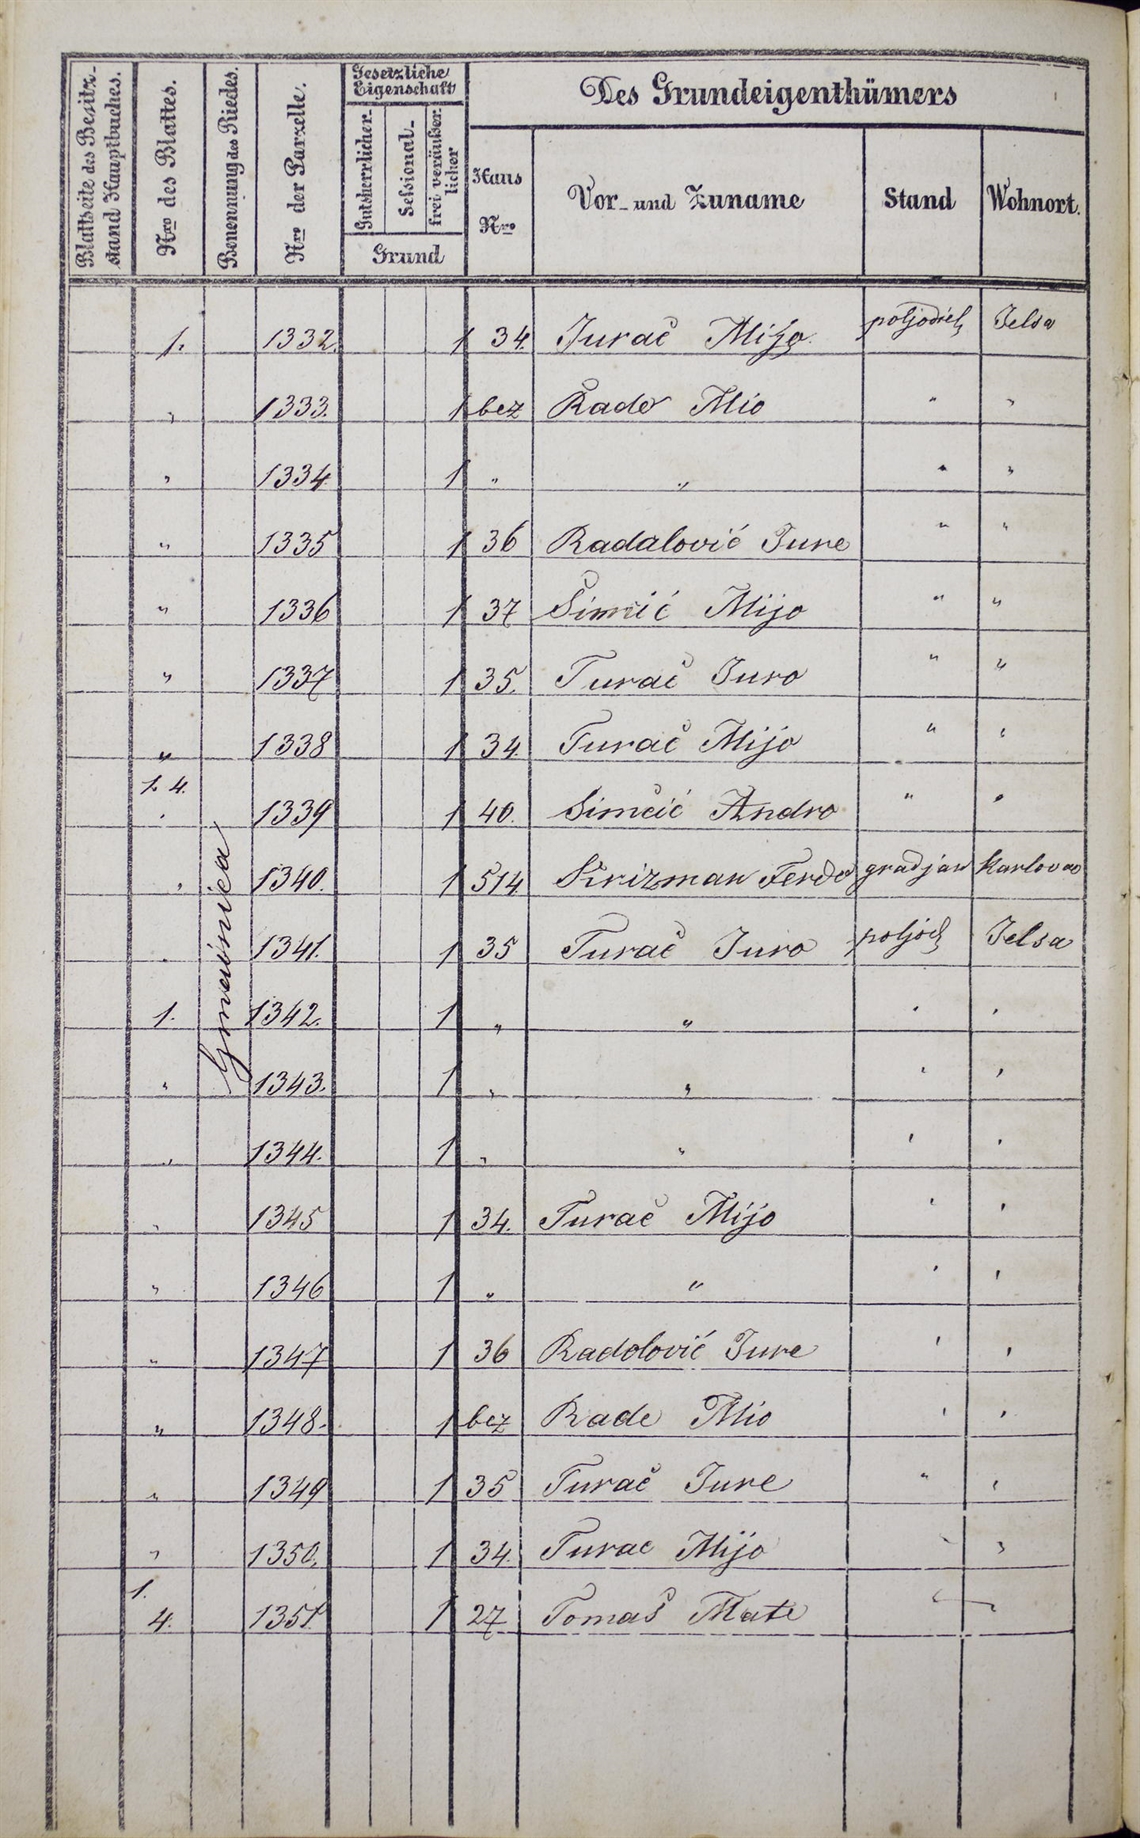 Blattseite des Besitz-stand Hauptbuches. Nro des Blattes. Benennung des Riedes. Nro der Parzelle. Gesetzliche Eigenschaft Des Grundeigenthümers
Gutsherrlicher Sessional- frei veräußerlicher Haus Nro Vor- und Zuname Stand Wohnort.
Grund
1. 1332. 1 34. Turač Mijo poljodielj Jelsa
„ 1333. 1 bez Rade Mio „ „
„ 1334 1 „ „ „ „
„ 1335 1 36 Radalović Jure „ „
„ 1336 1 37 Simčić Mijo „ „
„ 1337 1 35. Turač Juro „ „
„ 1338 1 34. Turač Mijo „ „
1. 4. 1339 1 40. Simčić Andro „ „
„ 1340. 1 514 Krizman Ferdo gradjan Karlovac
„ 1341. 1 35 Turač Juro poljod Jelsa
1. 1342. 1 „ „ „ „
„ 1343. 1 „ „ „ „
„ 1344. 1 „ „ „ „
„ 1345 1 34. Turač Mijo „ „
„ 1346 1 „ „ „ „
„ 1347 1 36 Radolović Jure „ „
„ 1348. 1 bez Rade Mio „ „
„ 1349 1 35 Turač Jure „ „
„ 1350. 1 34. Turac Mijo „ „
1. 4. 1351. 1 27 Tomaš Mate „ „